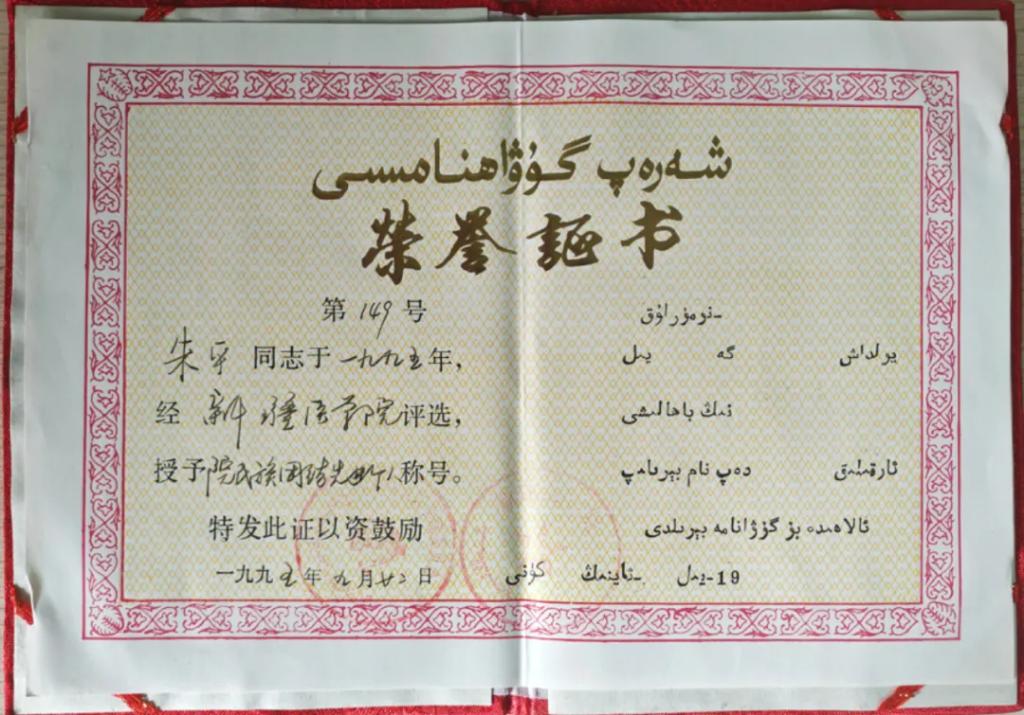 شەرەپ گۇۋاھنامىسى
榮誉証书
第149号
-نومۇرلۇق
朱平同志于一九九五年，
يولداش گە يىل
经新疆医学院评选，
نىڭ باھالىشى
授予院民族团结先进个人称号。
ئارقىلىق دەپ نام بېرىلىپ
特发此证以资鼓励
ئالاھىدە بۇ گۇۋانامە بېرىلدى
一九九五年九月廿二日
19-يىل -ئاينىڭ كۈنى